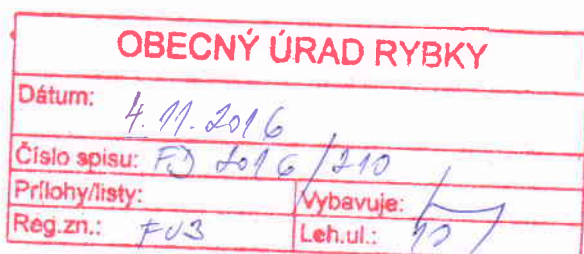 OBECNÝ ÚRAD RYBKY
Dátum: 4.11.2016
Číslo spisu: FJ 2016/210
Prílohy/listy: Vybavuje:
Reg.zn.: FU3 Leh.ul.: 10